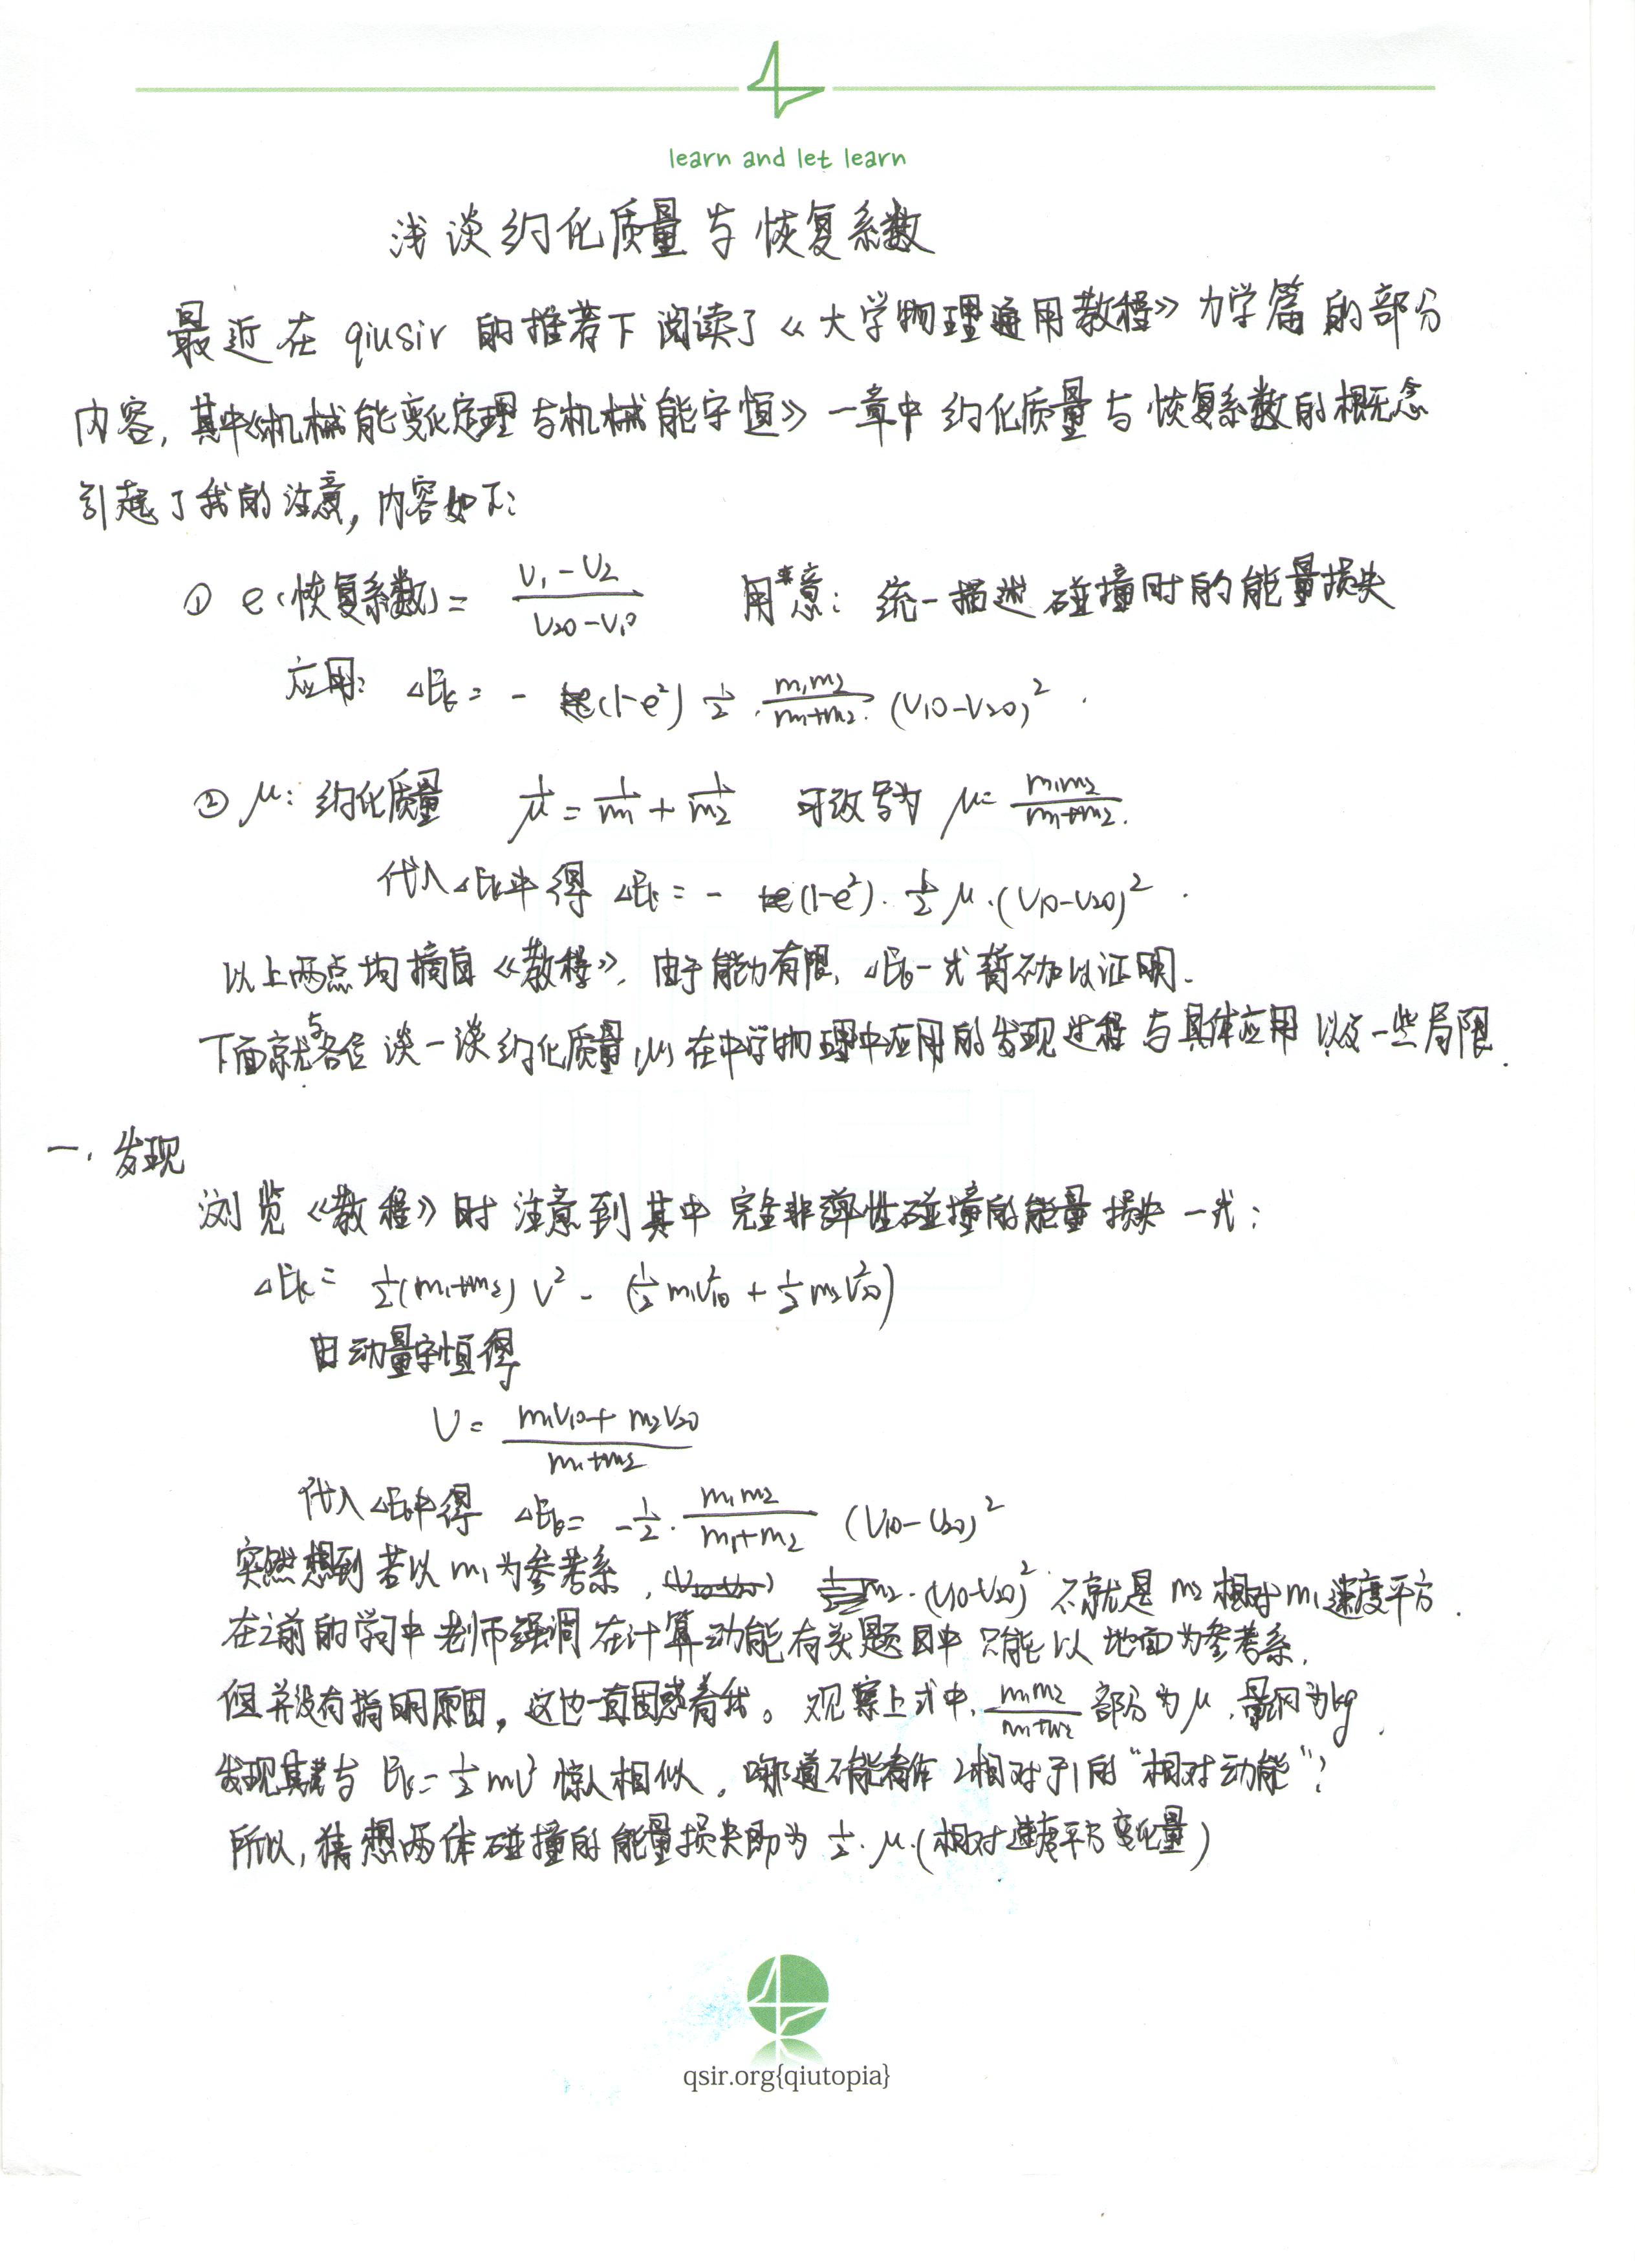 learn and let learn
浅谈约化质量与恢复系数
最近在qiusir的推荐下阅读了《大学物理通用教程》力学篇的部分
内容,其中《机械能变化定理与机械能守恒》一章中约化质量与恢复系数的概念
引起了我的注意,内容如下:
① e(恢复系数)= (V1-V2)/(V20-V10) 用意:统一描述碰撞时的能量损失
应用: △Ek = -(1-e²) 1/2 · m1m2/(m1+m2) · (V10-V20)²
② μ: 约化质量 1/μ = 1/m1 + 1/m2 可改写为 μ= m1m2/(m1+m2)
代入△Ek中得 △Ek = -(1-e²)· 1/2 μ·(V10-V20)²
以上两点均摘自《教程》,由于能力有限,△Ek一式暂不加以证明.
下面就与各位谈一谈约化质量(μ)在中学物理中应用的发现过程与具体应用以及一些局限.
一. 发现
浏览《教程》时注意到其中完全非弹性碰撞的能量损失一式:
△Ek = 1/2(m1+m2)V² - (1/2 m1V10² + 1/2 m2V20²)
由动量守恒得
V = (m1V10+m2V20)/(m1+m2)
代入△Ek中得 △Ek = -1/2 · m1m2/(m1+m2) (V10-V20)²
突然想到若以m1为参考系, (V10-V20)² 不就是m2相对m1速度平方.
在之前的学习中老师强调在计算动能有关题目中只能以地面为参考系,
但并没有指明原因,这也一直困惑着我。观察上式中, m1m2/(m1+m2) 部分为μ,量纲为kg.
发现其与Ek=1/2mv²惊人相似,哪道不能看作2相对于1的“相对动能”?
所以,猜想两体碰撞的能量损失即为 1/2·μ·(相对速度平方变化量)
qsir.org{qiutopia}